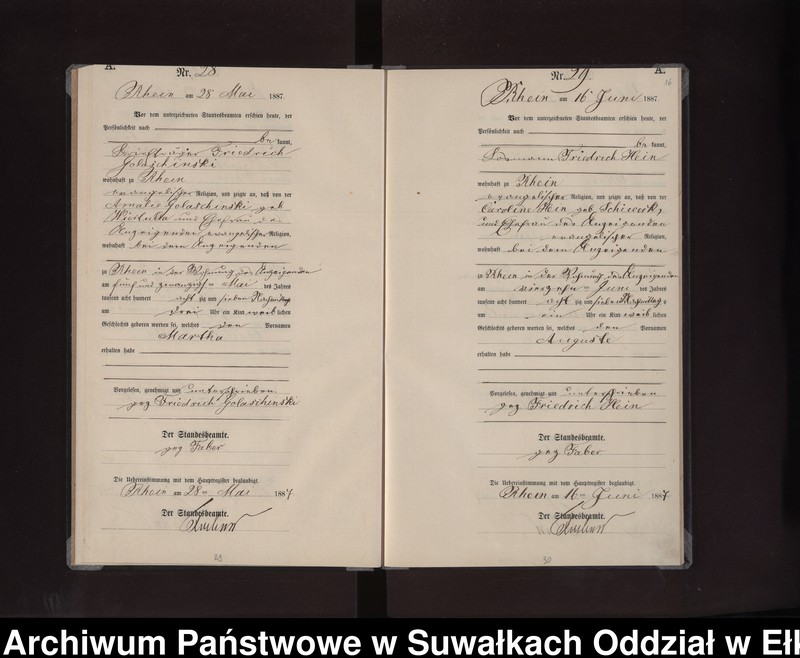 A.
Nr. 28
Rhein am 28 Mai 1887.
Vor dem unterzeichneten Standesbeamten erschien heute, der
Persönlichkeit nach
be kannt,
Friedrich
Golaschinski
wohnhaft zu Rhein
evangelischer Religion, und zeigte an, daß von der
Amalie Golaschinski geb
und Ehefrau des
Anzeigenden evangelischer Religion,
wohnhaft bei dem Anzeigenden
zu Rhein in der Wohnung des Anzeigenden
am fünf und zwanzigsten Mai des Jahres
tausend acht hundert acht zig und sieben Nachmittag
um drei Uhr ein Kind weib lichen
Geschlechts geboren worden sei, welches den Vornamen
Martha
erhalten habe
Vorgelesen, genehmigt und unterschrieben
gez Friedrich Golaschinski
Der Standesbeamte.
gez Faber
Die Uebereinstimmung mit dem Hauptregister beglaubigt.
Rhein am 28ten Mai 1887
Der Standesbeamte.
29
A.
Nr. 29.
16
Rhein am 16 Juni 1887
Vor dem unterzeichneten Standesbeamten erschien heute, der
Persönlichkeit nach
be kannt,
Friedrich Hein
wohnhaft zu Rhein
evangelischer Religion, und zeigte an, daß von der
Caroline Hein geb.
und Ehefrau des Anzeigenden
evangelischer Religion,
wohnhaft bei dem Anzeigenden
zu Rhein in der Wohnung des Anzeigenden
am vierzehn Juni des Jahres
tausend acht hundert acht zig und sieben Nachmittag s
um ein Uhr ein Kind weib lichen
Geschlechts geboren worden sei, welches den Vornamen
Auguste
erhalten habe
Vorgelesen, genehmigt und unterschrieben
gez Friedrich Hein
Der Standesbeamte.
gez Faber
Die Uebereinstimmung mit dem Hauptregister beglaubigt.
Rhein am 16ten Juni 1887
Der Standesbeamte.
30
Archiwum Państwowe w Suwałkach Oddział w Ełk